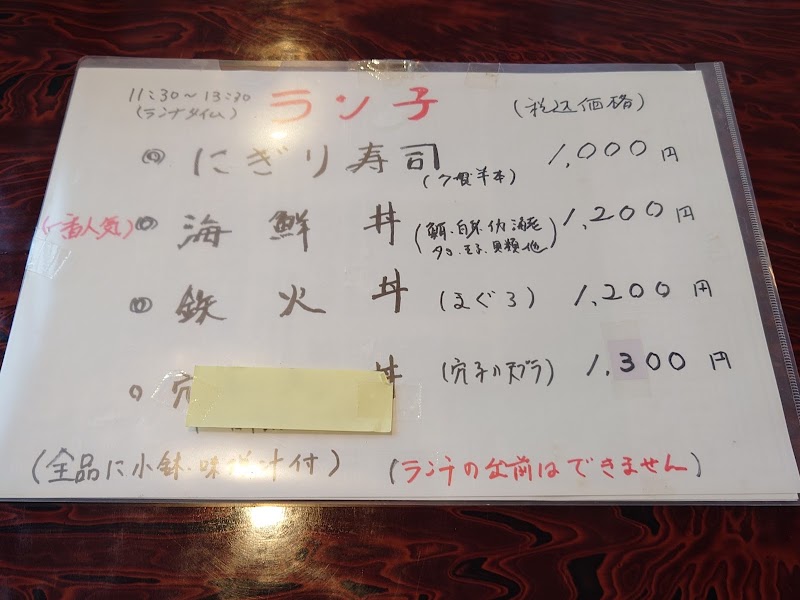 11:30~13:30
(ランチタイム)
ランチ
(税込価格)
◎ にぎり寿司 1,000円
(一番人気) ◎ 海鮮丼 1,200円
タコ、玉子、貝類他)
◎ 鉄火丼 (まぐろ) 1,200円
○ 穴 丼 (穴子の天プラ) 1,300円
(全品に小鉢・味噌汁付)
(ランチの出前はできません)